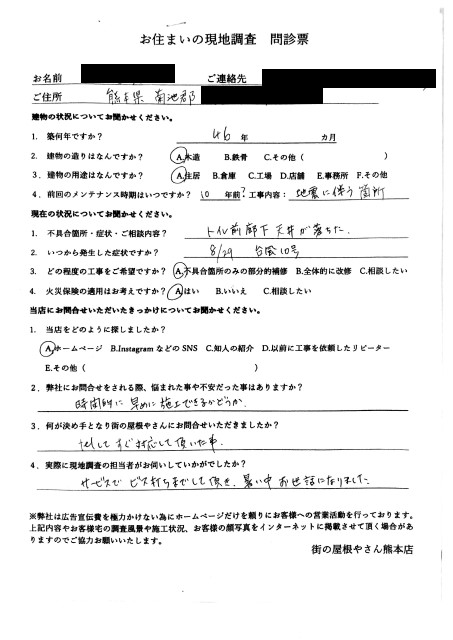 お住まいの現地調査　問診票
お名前　ご連絡先
ご住所　熊本県 菊池郡
建物の状況についてお聞かせください。
1. 築何年ですか？　46 年　カ月
2. 建物の造りはなんですか？　A.木造　B.鉄骨　C.その他（　）
3. 建物の用途はなんですか？　A.住居　B.倉庫　C.工場　D.店舗　E.事務所　F.その他
4. 前回のメンテナンス時期はいつですか？　10 年前？工事内容：地震に伴う箇所
現在の状況についてお聞かせください。
1. 不具合箇所・症状・ご相談内容？　トイレ前廊下 天井が落ちた.
2. いつから発生した症状ですか？　8/29　台風10号
3. どの程度の工事をご希望ですか？　A.不具合箇所のみの部分的補修　B.全体的に改修　C.相談したい
4. 火災保険の適用はお考えですか？　A.はい　B.いいえ　C.相談したい
当店にお問合せいただいたきっかけについてお聞かせください。
1. 当店をどのように探しましたか？
A.ホームページ　B.Instagram などの SNS　C.知人の紹介　D.以前に工事を依頼したリピーター
E.その他（　）
2. 弊社にお問合せをされる際、悩まれた事や不安だった事はありますか？
時間的に 早めに施工できるかどうか.
3. 何が決め手となり街の屋根やさんにお問合せいただきましたか？
telしてすぐ対応して頂いた事.
4. 実際に現地調査の担当者がお伺いしていかがでしたか？
サービスで ビス打ちまでして頂き、暑い中 お世話になりました
※弊社は広告宣伝費を極力かけない為にホームページだけを頼りにお客様への営業活動を行っております。
上記内容やお客様宅の調査風景や施工状況、お客様の顔写真をインターネットに掲載させて頂く場合があ
りますのでご協力お願いいたします。
街の屋根やさん熊本店